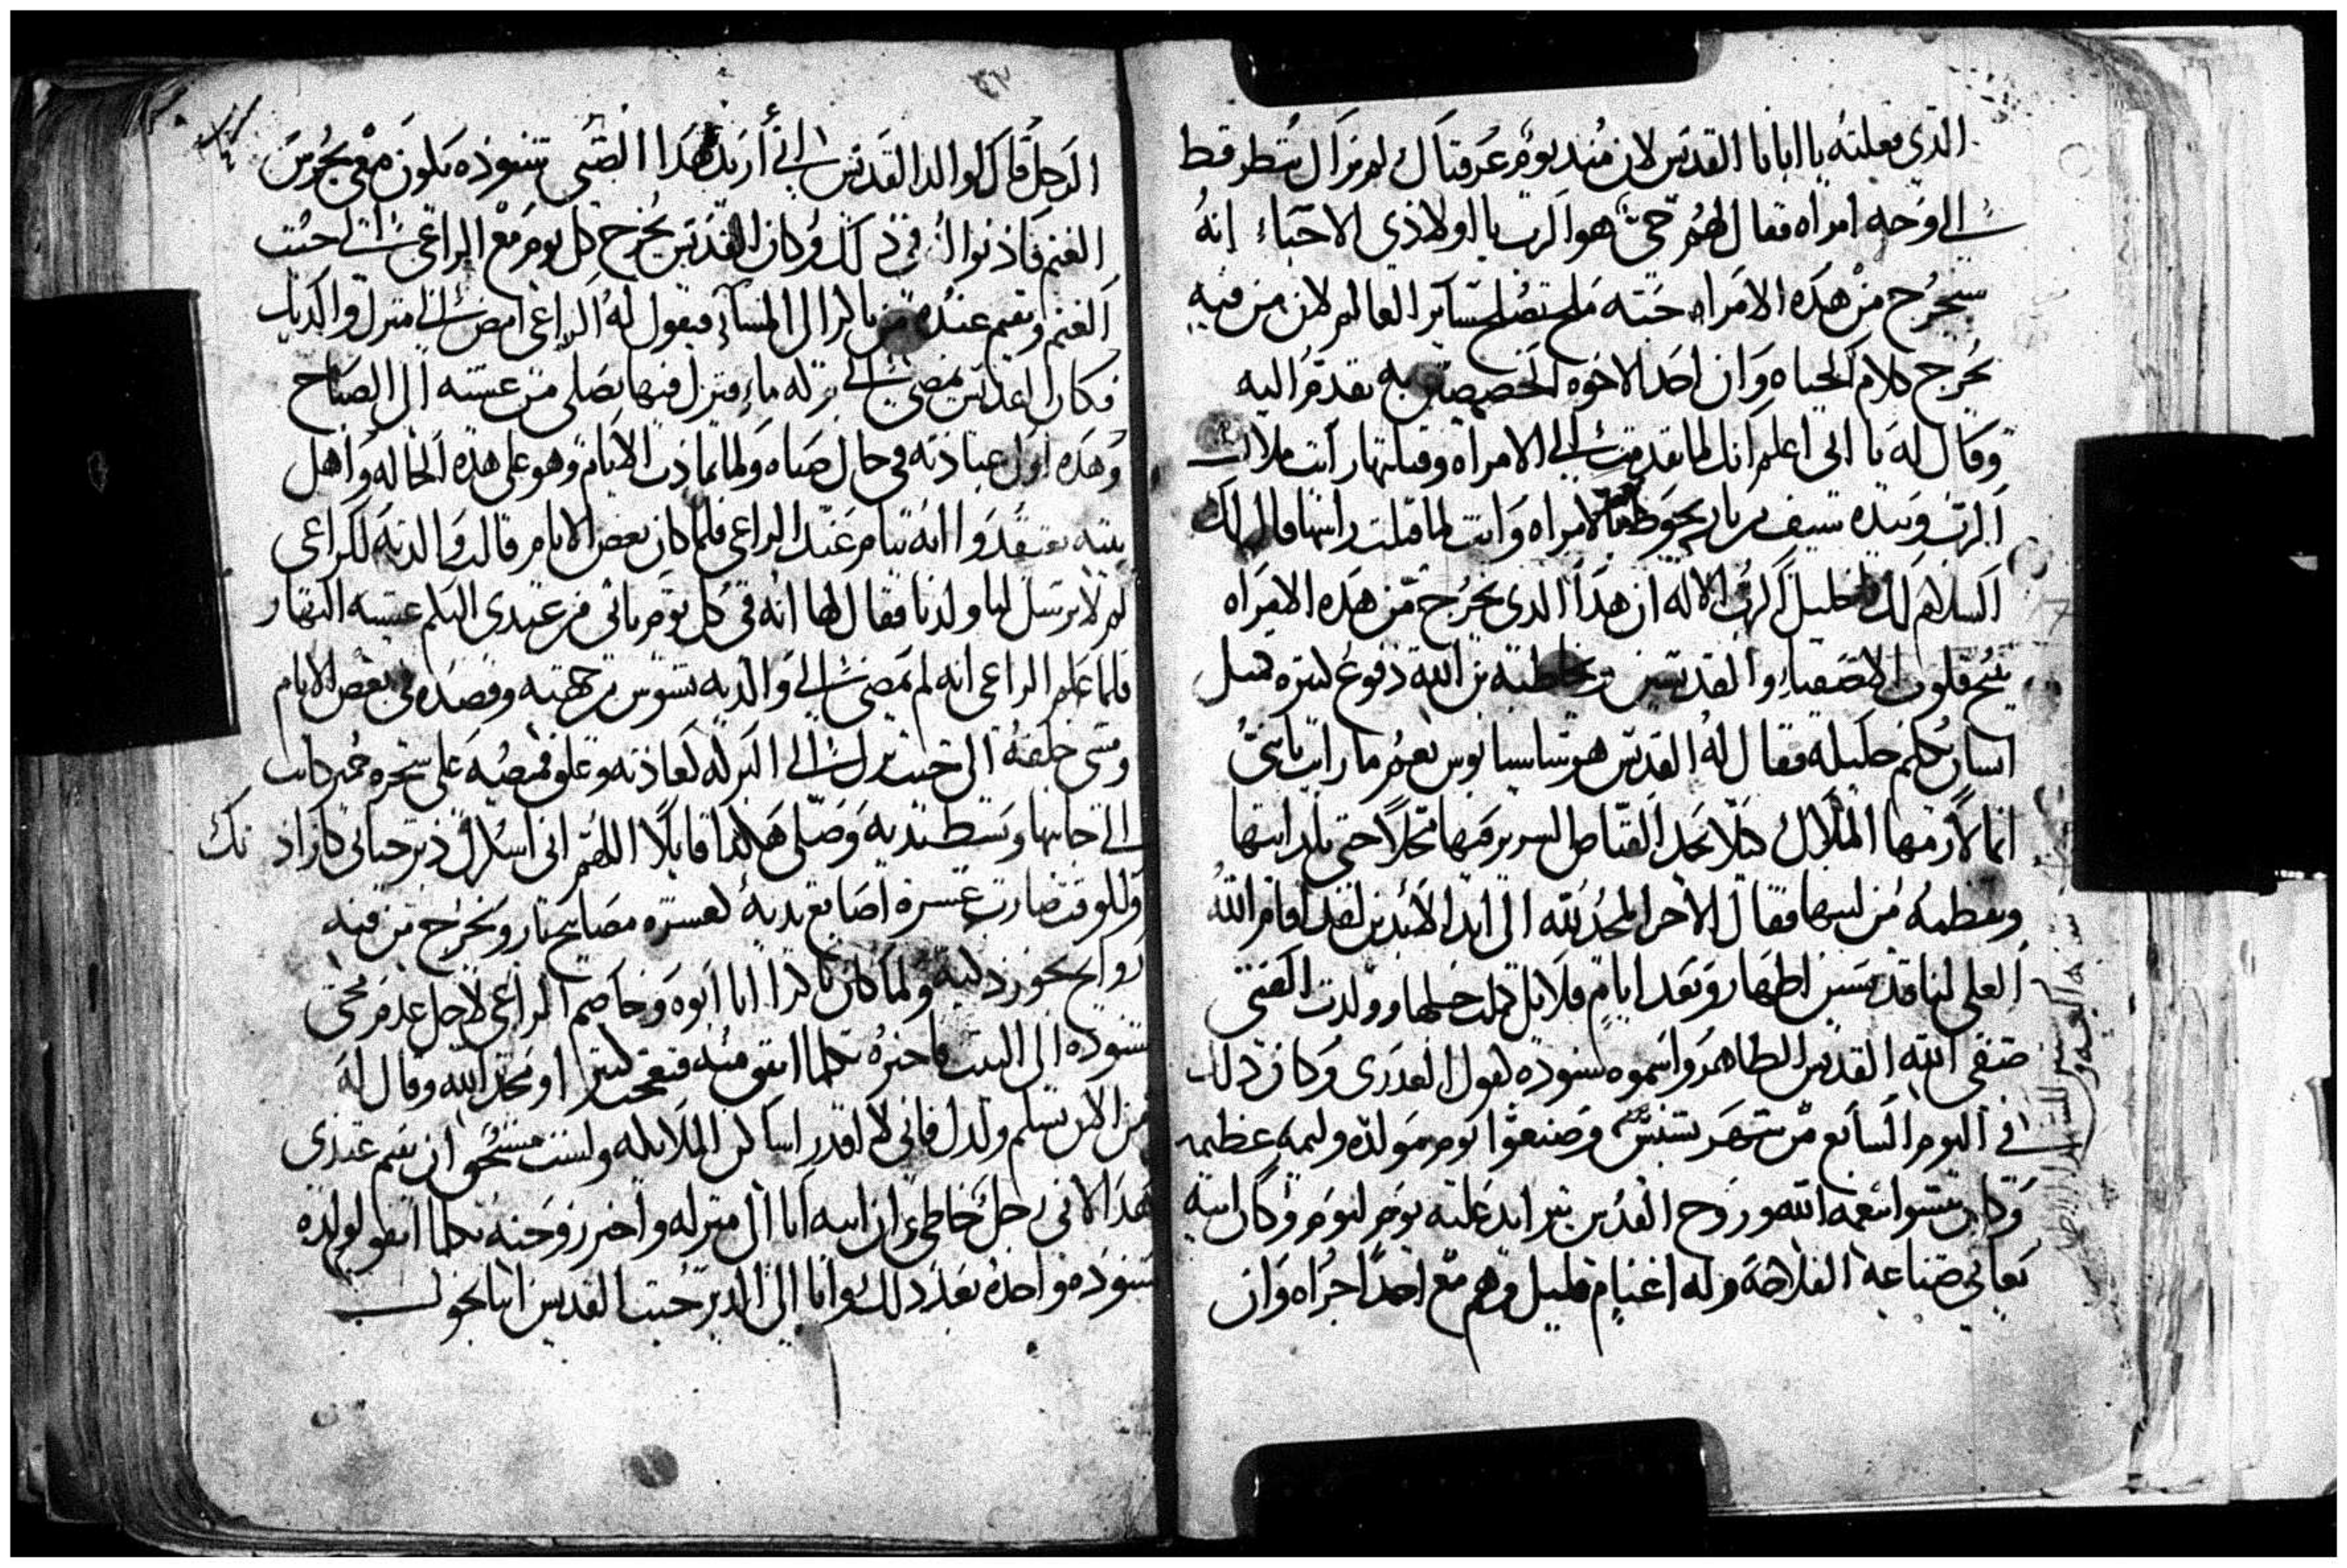 الذي فعلته يا ابانا القديس لان منذ يوم عرفناك لم نراك تنظر قط
الي وجه امراه فقال لهم حي هو الرب يا اولادي الاحباء انه
سيخرج من هذه الامراه حبته ملح تصلح سآير العالم لان من فيه
يخرج كلام الحياه وان احد الاخوه الخصيصين به تقدم اليه
وقال له يا ابي اعلم انك لما تقدمت الي الامراه وقبلتها رايت ملاك
الرب وبيده سيف نار يحوط بالامراه وانت لما قبلت راسها قال لك
السلام لك يا خليل الاله ان هذا الذي يخرج من هذه الامراه
قلوب الاصفياء والقديسين مخاطبه من الله دفوع كثيره مثل
انسان يكلم خليله فقال له القديس نعم ما رايت يا بني
انما لازمها الملاك
فقال الاخر المجد لله الى ابد الابدين لقد اقام الله
العلي لنا قديسين اطهار وبعد ايام قلايل كملت حملها وولدت الفتى
صفي الله القديس الطاهر واسموه شنوده لقول العذرى وكان ذلك
في اليوم السابع من شهر بشنس وصنعوا يوم مولده وليمه عظيمه
وكان ينشوا بنعمه الله وروح القدس يتزايد عليه يوم ليوم وكان ابيه
يعاني صناعه الفلاحه وله اغنام قليل وهم مع احد اجراه وان
الرجل قال لوالد القديس اني أريد هذا الصبي شنوده يكون معي يحرس
الغنم فاذنوا له في ذلك وكان القديس يخرج كل يوم مع الراعي الي حيث
الغنم ويقيم عنده من باكر الى المسآء فيقول له الراعي امض الي منزل والديك
فكان القديس يمضي الي بركه ماء فينزل فيها يصلي من عشيه الى الصباح
وهذه اول عبادته في حال صباه ولما تمادت الايام وهو على هذه الحاله واهل
بيته يعتقدوا انه ينام عند الراعي فلما كان بعض الايام قالت والدته للراعي
لم لا ترسل لنا ولدنا فقال لها انه في كل يوم ياتي من عندي اليكم عشيه النهار
فلما علم الراعي انه لم يمضي الي والديه تشوش من جهته وقصده في بعض الايام
ومشى خلفه الى حيث نزل الي البركه كعادته وعلق قميصه على شجره جميز كانت
الي جانبها وبسط يديه وصلى هكذا قايلاً اللهم اني اسلك دبر حياتي كارادتك
وللوقت صارت عشرة اصابع يديه كعشره مصابيح نار ويخرج من فيه
روايح بخور ذكيه ولما كان باكرا اتا ابوه وخاصم الراعي لاجل عدم مجي
شنوده الى البيت فاخبره بكلما اتفق منه فتعجب كثيرا ومجد الله وقال له
من الان تسلم ولدك فاني لا اقدر اساكن الملايكه ولست مستحق ان يقيم عندي
هذا لاني رجل خاطي وان ابيه اتا الى منزله واخبر زوجته بكلما اتفق لولده
شنوده واخده بعد ذلك واتا الى الدير حيث القديس انبا بجول